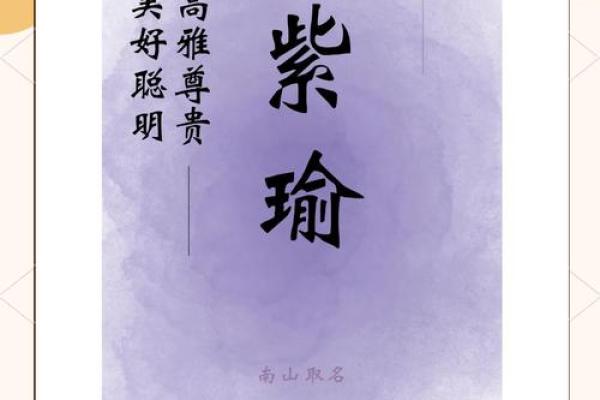 紫瑜
高雅尊贵
美好聪明
南山取名